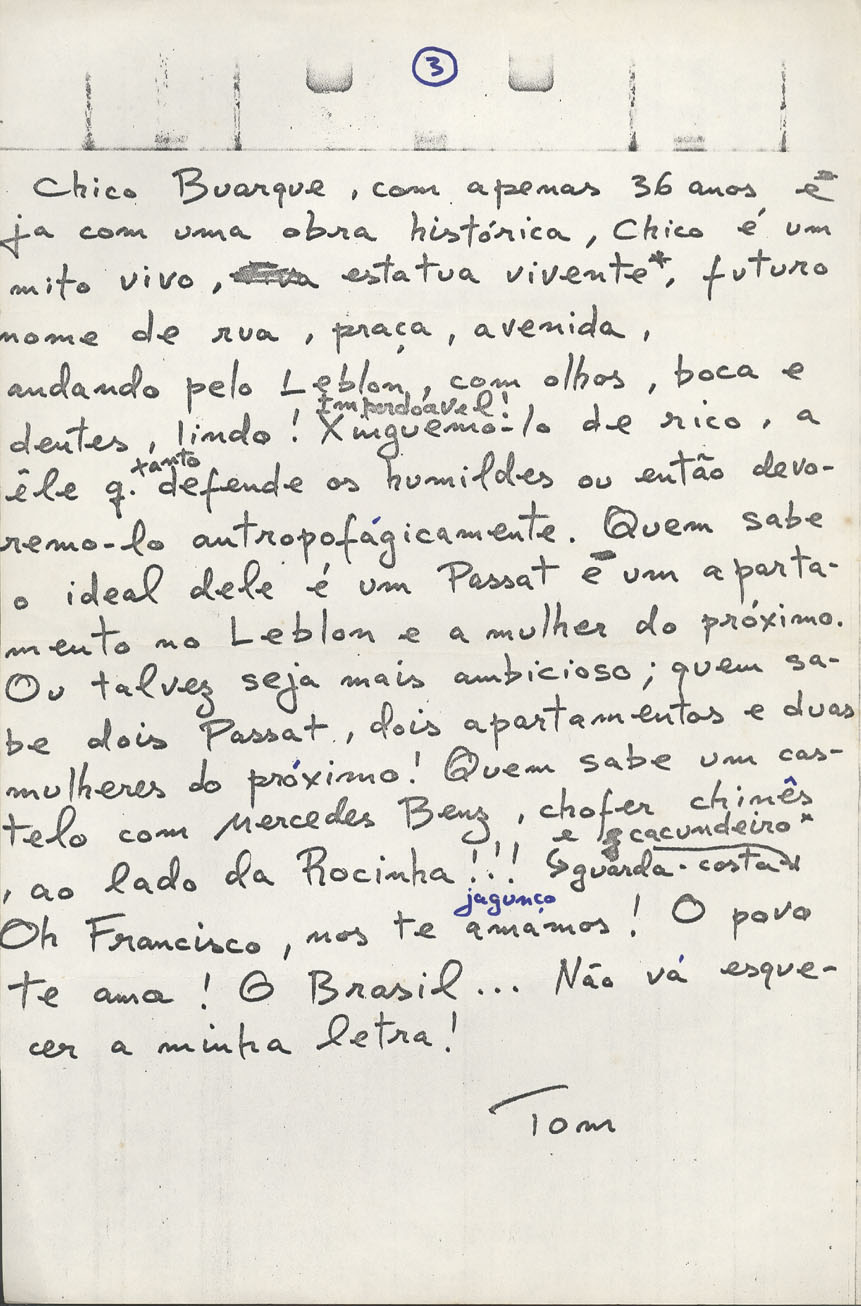 3
Chico Buarque, com apenas 36 anos é
ja com uma obra histórica, Chico é um
mito vivo, estatua vivente*, futuro
nome de rua, praça, avenida,
andando pelo Leblon, com olhos, boca e
Imperdoável!
dentes, lindo! Xinguemo-lo de rico, a
tanto
êle q. defende os humildes ou então devo-
remo-lo antropofágicamente. Quem sabe
o ideal dele é um Passat e um aparta-
mento no Leblon e a mulher do próximo.
Ou talvez seja mais ambicioso; quem sa-
be dois Passat, dois apartamentos e duas
mulheres do próximo! Quem sabe um cas-
telo com Mercedes Benz, chofer chinês
e cacundeiro*
, ao lado da Rocinha!!! guarda-costa
jagunço
Oh Francisco, nos te amámos! O povo
te ama! O Brasil... Não vá esque-
cer a minha letra!
Tom